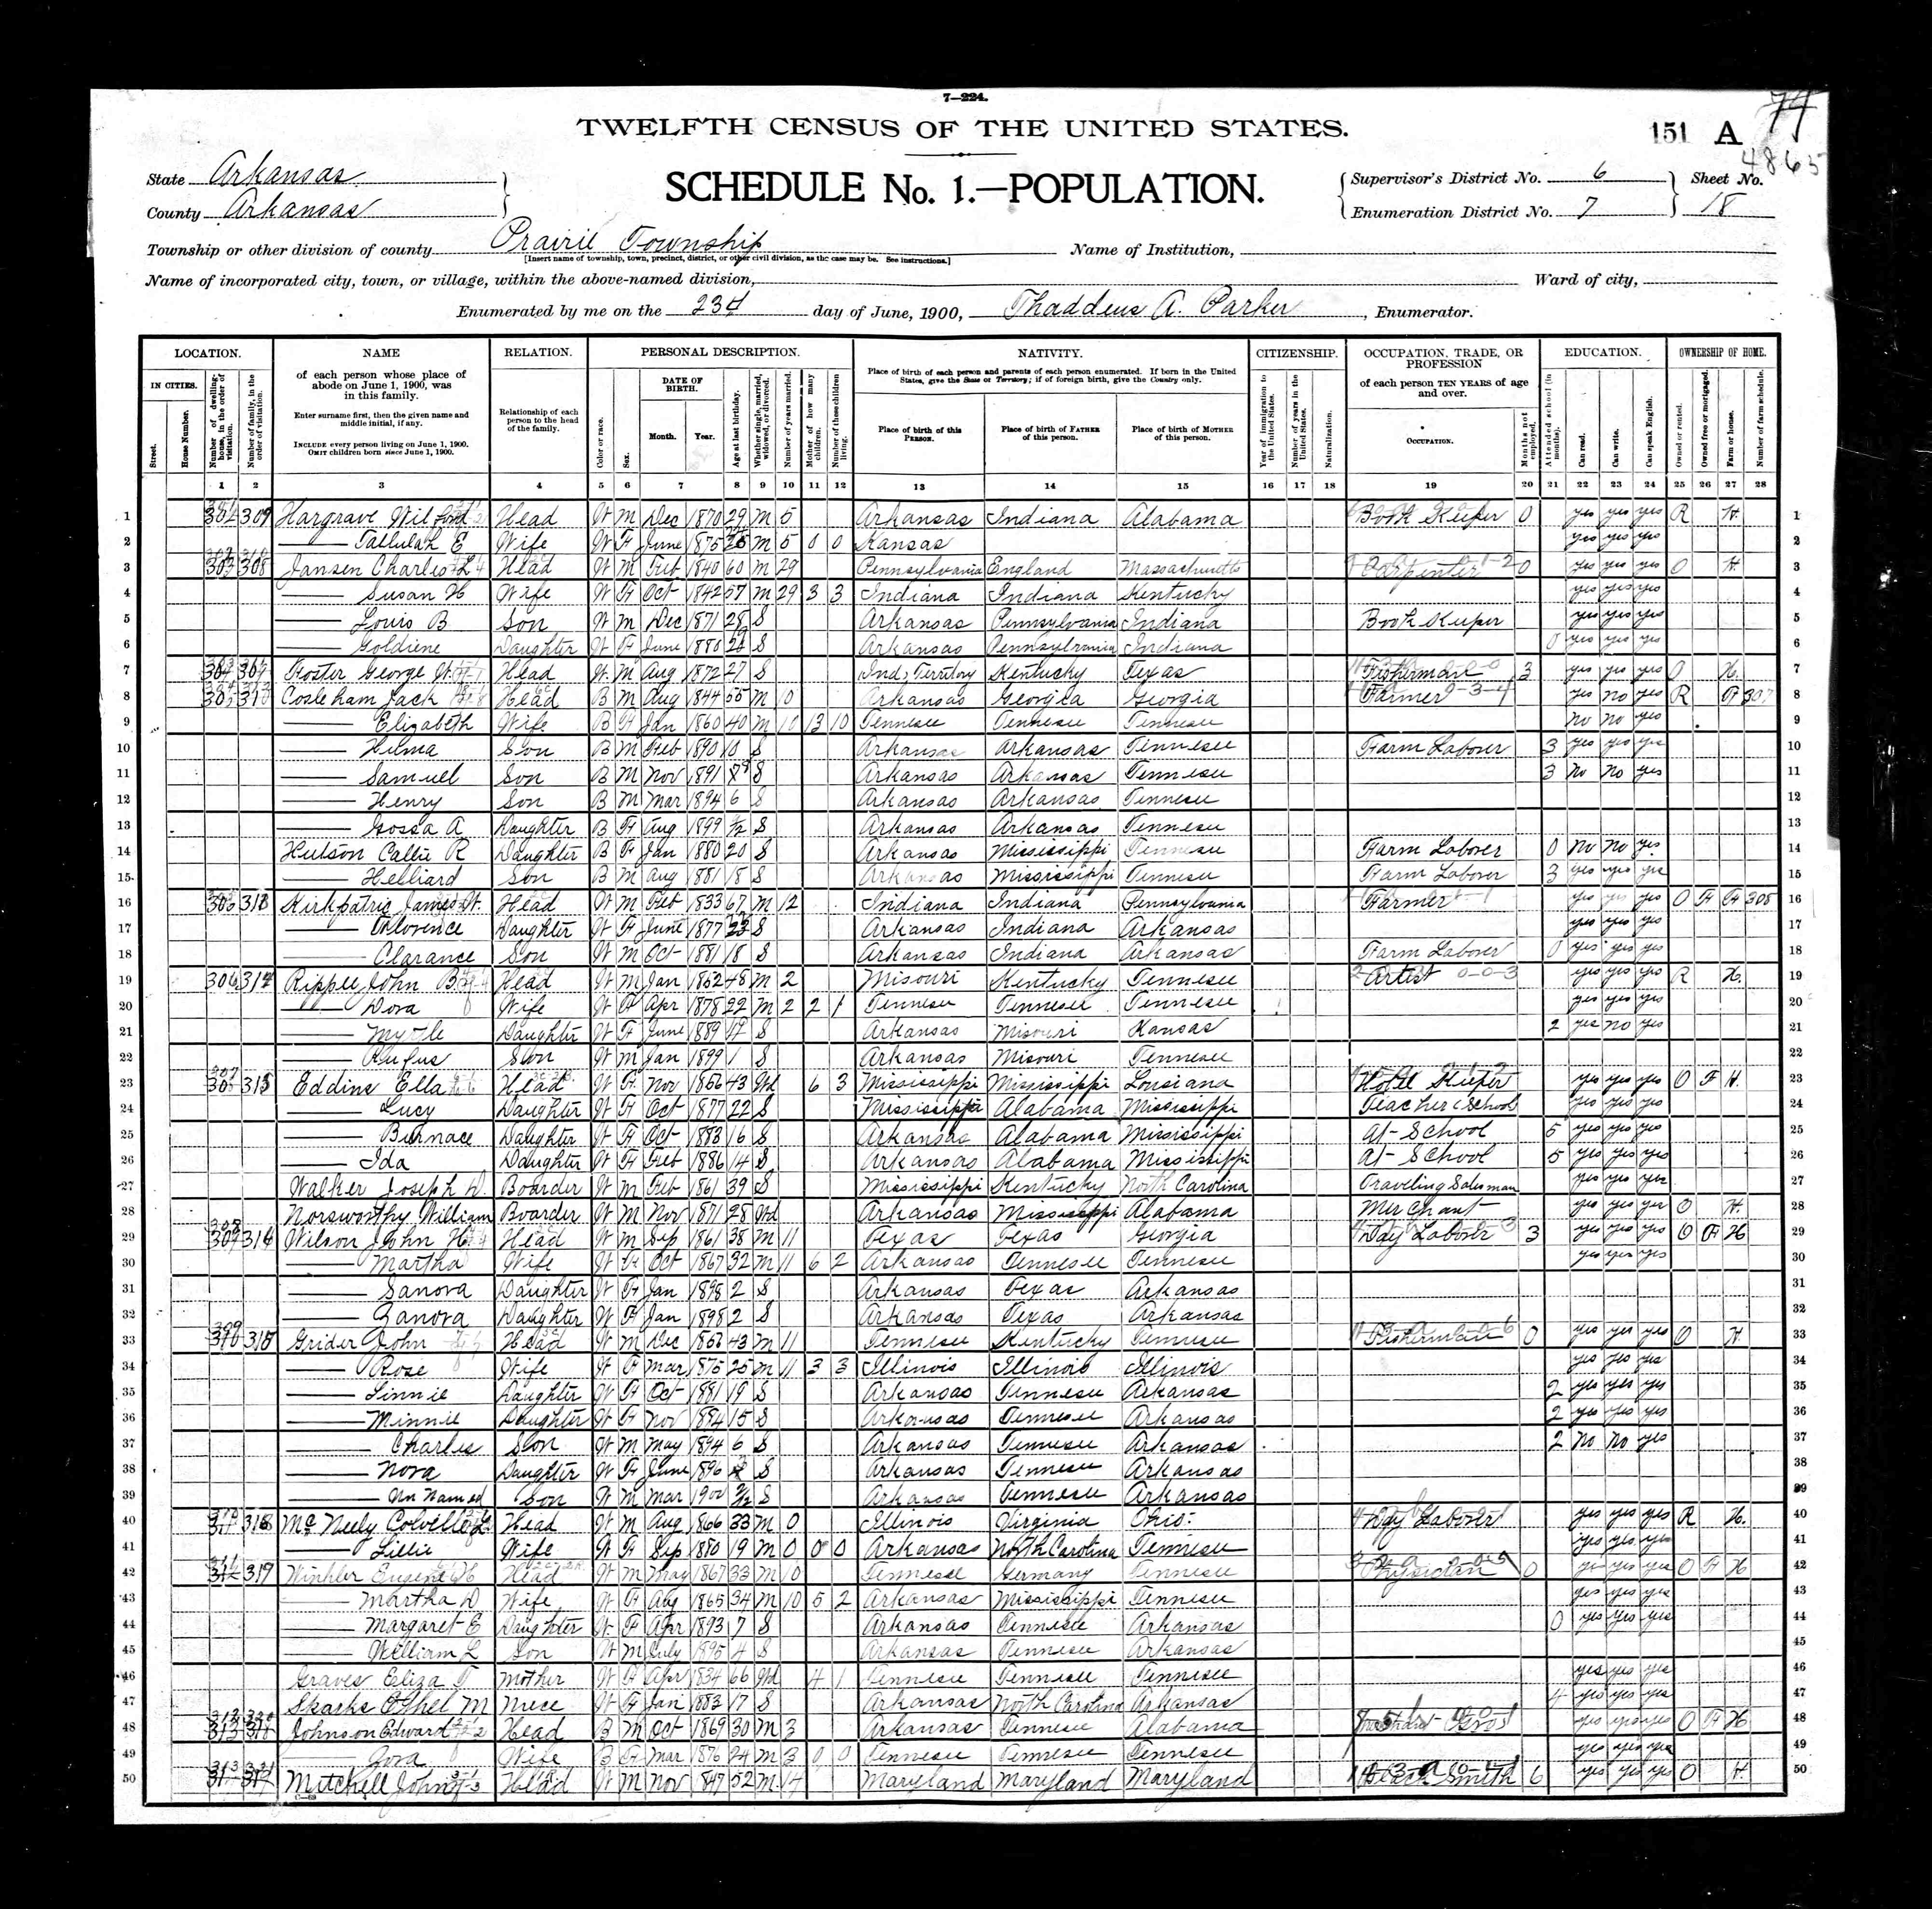 7—224.
TWELFTH CENSUS OF THE UNITED STATES.
151 A 74
4865
State Arkansas
County Arkansas
SCHEDULE No. 1.—POPULATION.
Supervisor's District No. 6
Enumeration District No. 7
Sheet No. 18
Township or other division of county Prairie Township
[Insert name of township, town, precinct, district, or other civil division, as the case may be. See instructions.]
Name of Institution,
Name of incorporated city, town, or village, within the above-named division,
Ward of city,
Enumerated by me on the 23d day of June, 1900, Thaddeus A. Parker, Enumerator.
LOCATION. NAME RELATION. PERSONAL DESCRIPTION. NATIVITY. CITIZENSHIP. OCCUPATION, TRADE, OR PROFESSION EDUCATION. OWNERSHIP OF HOME.
IN CITIES. Street. House Number. Number of dwelling-house, in the order of visitation. Number of family, in the order of visitation.
of each person whose place of abode on June 1, 1900, was in this family.
Enter surname first, then the given name and middle initial, if any.
INCLUDE every person living on June 1, 1900. OMIT children born since June 1, 1900.
Relationship of each person to the head of the family.
Color or race. Sex. DATE OF BIRTH. Month. Year. Age at last birthday. Whether single, married, widowed, or divorced. Number of years married. Mother of how many children. Number of these children living.
Place of birth of each person and parents of each person enumerated. If born in the United States, give the State or Territory; if of foreign birth, give the Country only.
Place of birth of this PERSON. Place of birth of FATHER of this person. Place of birth of MOTHER of this person.
Year of immigration to the United States. Number of years in the United States. Naturalization.
of each person TEN YEARS of age and over.
OCCUPATION. Months not employed.
Attended school (in months). Can read. Can write. Can speak English.
Owned or rented. Owned free or mortgaged. Farm or house. Number of farm schedule.
1 2 3 4 5 6 7 8 9 10 11 12 13 14 15 16 17 18 19 20 21 22 23 24 25 26 27 28
1 309 Hargrave Wilford Head W M Dec 1870 29 M 5 Arkansas Indiana Alabama Book Keeper 0 yes yes yes R H 1
2 Tallulah E Wife W F June 1875 M 5 0 0 Kansas yes yes yes 2
3 308 Jansen Charles L Head W M Feb 1840 60 M 29 Pennsylvania England Massachusetts Carpenter 0 yes yes yes O H 3
4 Susan H Wife W F Oct 1842 57 M 29 3 3 Indiana Indiana Kentucky yes yes yes 4
5 Louis B Son W M Dec 1871 28 S Arkansas Pennsylvania Indiana Book Keeper yes yes yes 5
6 Goldiene Daughter W F June 1880 S Arkansas Pennsylvania Indiana 0 yes yes yes 6
7 Foster George W. Head W M Aug 1872 27 S Ind. Territory Kentucky Texas Fisherman 3 yes yes yes O H. 7
8 Cosleham Jack Head B M Aug 1844 55 M 10 Arkansas Georgia Georgia Farmer yes no yes R F 307 8
9 Elizabeth Wife B F Jan 1860 40 M 10 13 10 Tennesee Tennesee Tennesee no no yes 9
10 Hilma Son B M Feb 1890 10 S Arkansas Arkansas Tennesee Farm Laborer 3 yes yes yes 10
11 Samuel Son B M Nov 1891 S Arkansas Arkansas Tennesee 3 no no yes 11
12 Henry Son B M Mar 1894 6 S Arkansas Arkansas Tennesee 12
13 Gossa A Daughter B F Aug 1899 S Arkansas Arkansas Tennesee 13
14 Hutson Callie R Daughter B F Jan 1880 20 S Arkansas Mississippi Tennesee Farm Laborer 0 no no yes 14
15 Helliard Son B M Aug 1881 18 S Arkansas Mississippi Tennesee Farm Laborer 3 yes yes yes 15
16 Kirkpatric James W. Head W M Feb 1833 67 M 12 Indiana Indiana Pennsylvania Farmer yes yes yes O F F 308 16
17 Florence Daughter W F June 1877 S Arkansas Indiana Arkansas yes yes yes 17
18 Clarance Son W M Oct 1881 18 S Arkansas Indiana Arkansas Farm Laborer 0 yes yes yes 18
19 306 314 Rippee John B Head W M Jan 1852 48 M 2 Misouri Kentucky Tennesee Artist 0-0-3 yes yes yes R H. 19
20 Dora Wife W F Apr 1878 22 M 2 2 1 Tennesee Tennesee Tennesee yes yes yes 20
21 Myrtle Daughter W F June 1889 S Arkansas Misouri Kansas 2 yes no yes 21
22 Rufus Son W M Jan 1899 1 S Arkansas Misouri Tennesee 22
23 315 Eddins Ella Head W F Nov 1856 43 Wd 6 3 Mississippi Mississippi Lousiana Hotel Keeper yes yes yes O F H. 23
24 Lucy Daughter W F Oct 1877 22 S Mississippi Alabama Mississippi Teacher School yes yes yes 24
25 Burnace Daughter W F Oct 1883 16 S Arkansas Alabama Mississippi At School 5 yes yes yes 25
26 Ida Daughter W F Feb 1886 14 S Arkansas Alabama Mississippi At School 5 yes yes yes 26
27 Walker Joseph D. Boarder W M Feb 1861 39 S Mississippi Kentucky North Carolina Traveling Salesman yes yes yes 27
28 Norsworthy William Boarder W M Nov 1871 28 Wd Arkansas Mississippi Alabama Merchant yes yes yes O H. 28
29 316 Wilson John H Head W M Sep 1861 38 M 11 Texas Texas Georgia Day Laborer 3 yes yes yes O F H 29
30 Martha Wife W F Oct 1867 32 M 11 6 2 Arkansas Tennesee Tennesee yes yes yes 30
31 Sanova Daughter W F Jan 1898 2 S Arkansas Texas Arkansas 31
32 Zanora Daughter W F Jan 1898 2 S Arkansas Texas Arkansas 32
33 Grider John Head W M Dec 1856 43 M 11 Tennesee Kentucky Tennesee Fisherman 0 yes yes yes O H. 33
34 Rose Wife W F Mar 1875 25 M 11 3 3 Illinois Illinois Illinois yes yes yes 34
35 Linnie Daughter W F Oct 1881 19 S Arkansas Tennesee Arkansas 2 yes yes yes 35
36 Minnie Daughter W F Nov 1884 15 S Arkansas Tennesee Arkansas 2 yes yes yes 36
37 Charles Son W M May 1894 6 S Arkansas Tennesee Arkansas 2 no no yes 37
38 Nora Daughter W F June 1896 S Arkansas Tennesee Arkansas 38
39 Un Named Son W M Mar 1900 S Arkansas Tennesee Arkansas 39
40 McNeely Colville L. Head W M Aug 1866 33 M 0 Illinois Virginia Ohio Day Laborer yes yes yes R H. 40
41 Lillie Wife W F Sep 1880 19 M 0 0 0 Arkansas North Carolina Tennesee yes yes yes 41
42 319 Winkler Eugene H Head W M May 1867 33 M 10 Tennesee Germany Tennesee Physician 0 yes yes yes O F H 42
43 Martha D Wife W F Aug 1865 34 M 10 5 2 Arkansas Mississippi Tennesee yes yes yes 43
44 Margaret E Daughter W F Apr 1893 7 S Arkansas Tennesee Arkansas 0 yes yes yes 44
45 William L Son W M July 1895 4 S Arkansas Tennesee Arkansas 45
46 Graves Eliza T Mother W F Apr 1834 66 Wd 4 1 Tennesee Tennesee Tennesee yes yes yes 46
47 Skarks Othel M Niece W F Jan 1883 17 S Arkansas North Carolina Arkansas 4 yes yes yes 47
48 Johnson Edward Head B M Oct 1869 30 M 3 Arkansas Tennesee Alabama yes yes yes O F H 48
49 Cora Wife B F Mar 1876 24 M 3 0 0 Tennesee Tennesee Tennesee yes yes yes 49
50 Mitchell John Head W M Nov 1847 52 M 14 Maryland Maryland Maryland Black Smith 6 yes yes yes O H. 50